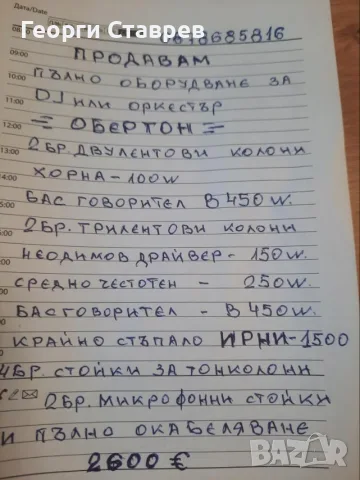 Data/Date
Георги Ставрев
08:00
09:00 ПРОДАВАМ
10:00 ПЪЛНО ОБОРУДВАНЕ ЗА
11:00 DJ ИЛИ ОРКЕСТЪР
12:00 = ОБЕРТОН =
13:00 2БР. ДВУЛЕНТОВИ КОЛОНИ
ХОРНА - 100W
БАС ГОВОРИТЕЛ В 450W.
2БР. ТРИЛЕНТОВИ КОЛОНИ
НЕОДИМОВ ДРАЙВЕР - 150W.
СРЕДНО ЧЕСТОТЕН - 250W.
БАС ГОВОРИТЕЛ - В 450W.
КРАЙНО СТЪПАЛО ИРНИ-1500
4БР. СТОЙКИ ЗА ТОНКОЛОНИ
2БР. МИКРОФОННИ СТОЙКИ
И ПЪЛНО ОКАБЕЛЯВАНЕ
2600 €
BAZAR
bg